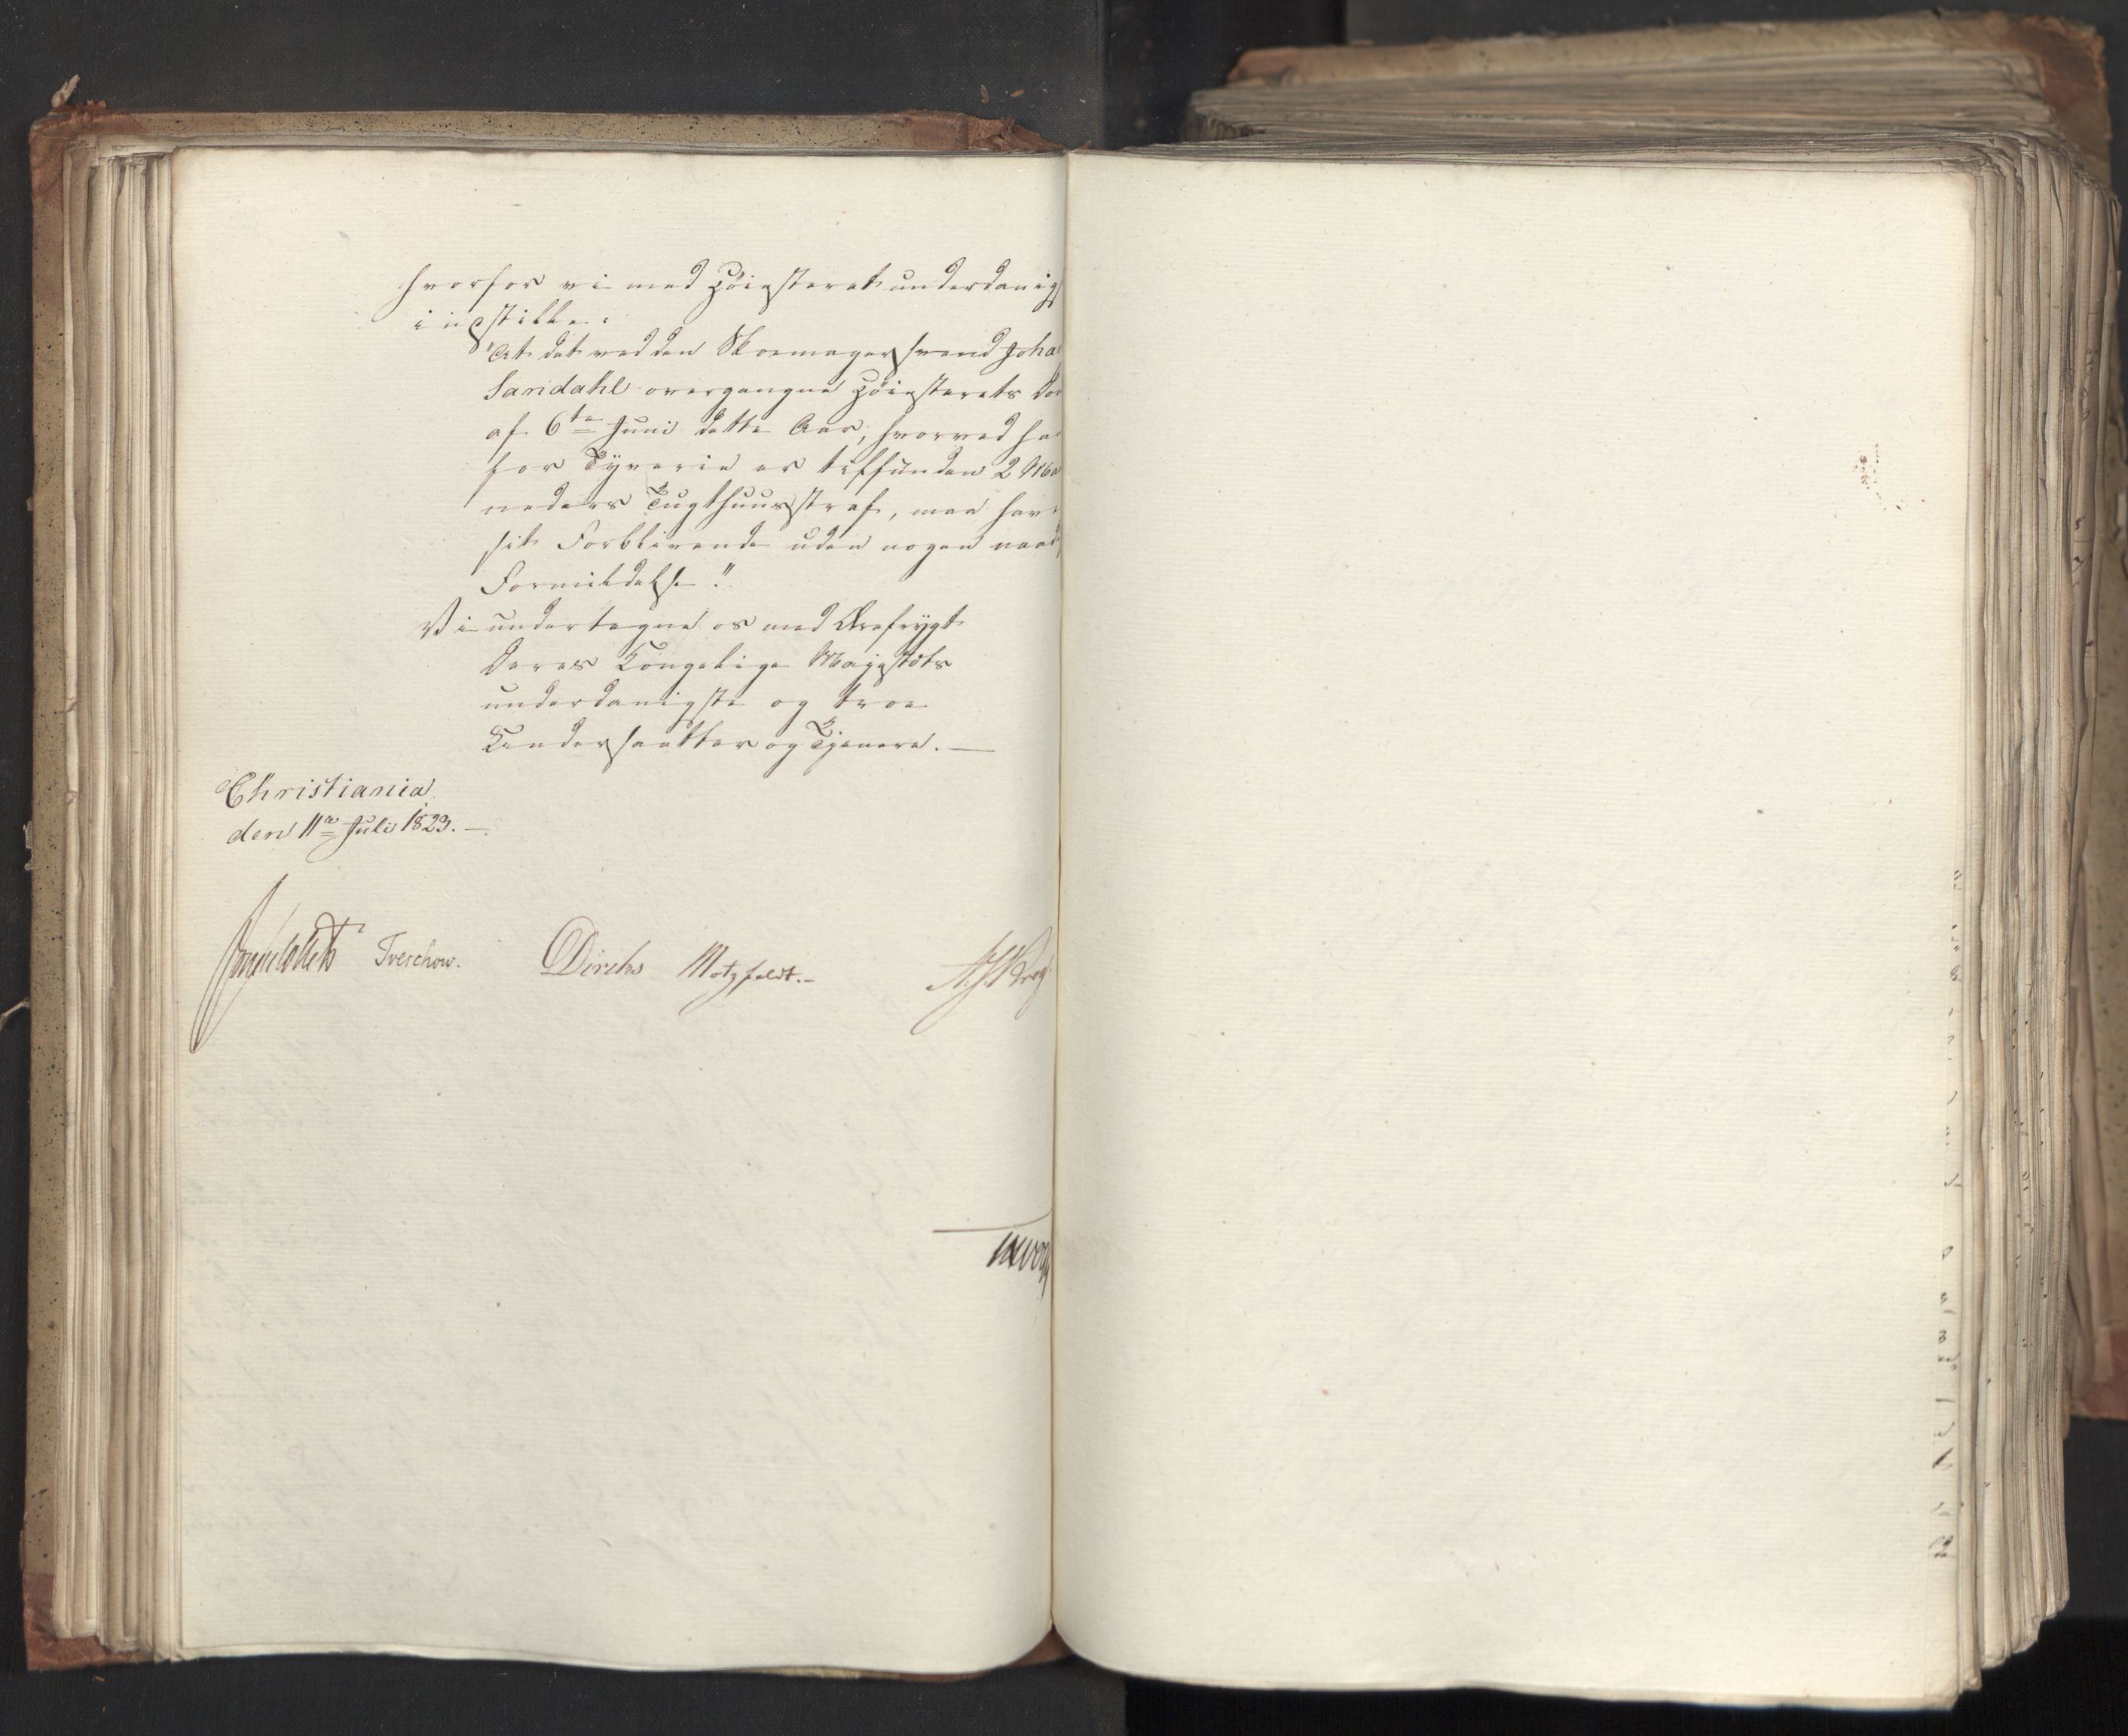 hvorfor vi med Høiesteret underdanigst
indstille:
"At det ved den Skomagersvend Johan
Sandahl overgangne Høiesterets Dom
af 6te Juni dette Aar, hvorved han
for Tyverie er tilfunden 2 Maa
neders Tugthuusstraf, maa have
sit Forblivende uden nogen naadig
Formildelse."
Vi undertegne os med Ærefrygt
Deres Kongelige Majestæts
underdanigste og troe
Undersaatter og Tjenere. —
Christiania
den 11te Juli 1823. —
Sommerhielm Treschow. Diriks Motzfeldt. — Krog